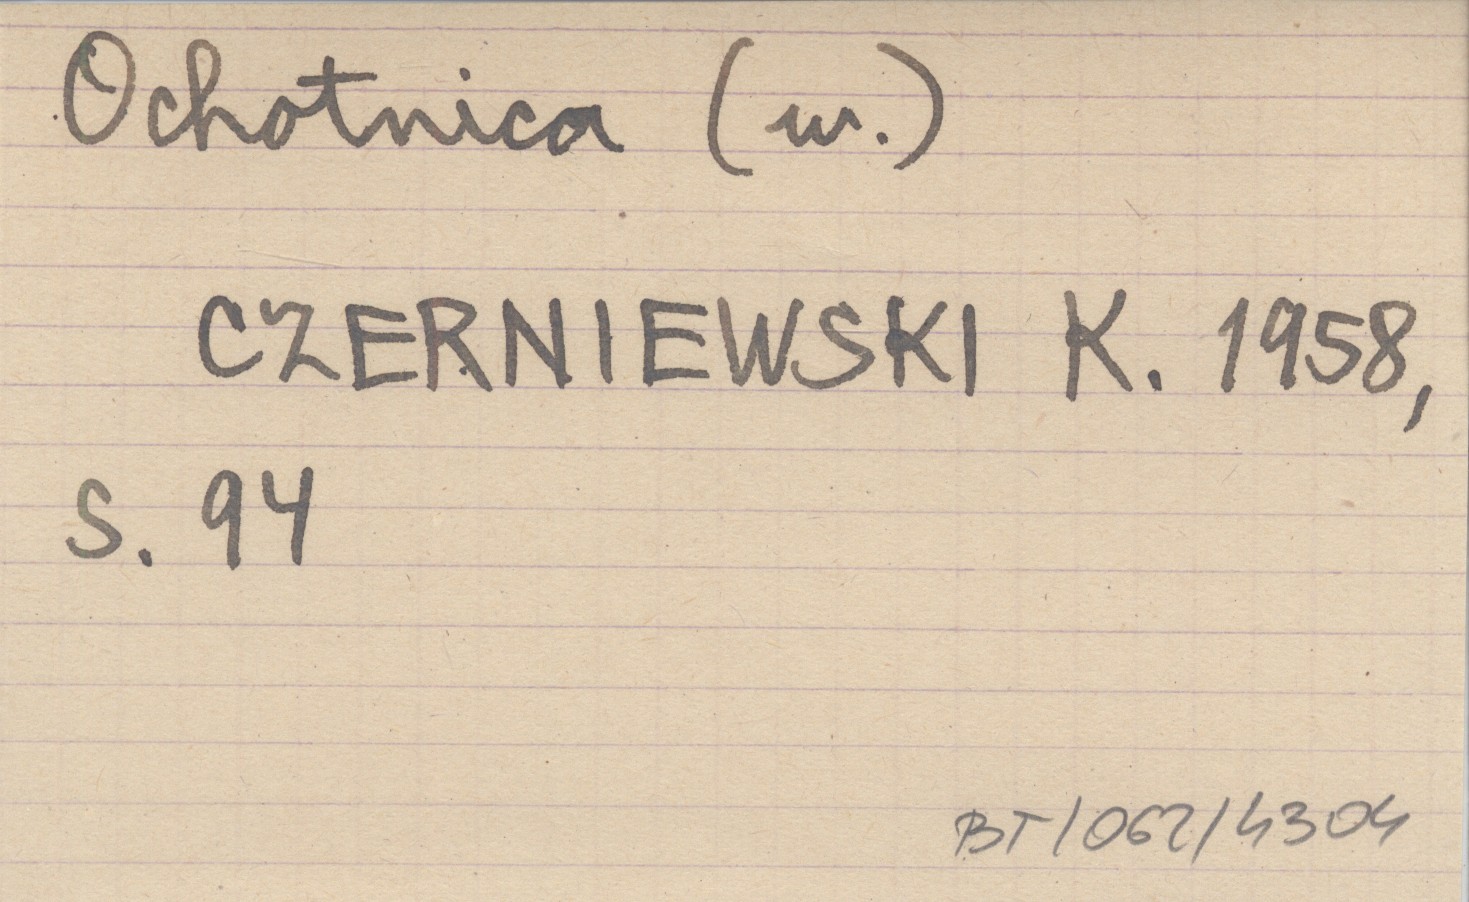 Ochotnica (w.)
CZERNIEWSKI K. 1958,
s. 94
BT/062/4304